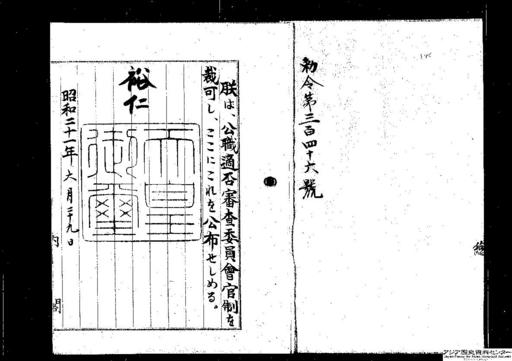 勅令第三百四十六號
朕は、公職適否審査委員會官制を
裁可し、ここにこれを公布せしめる。
裕仁
天皇御璽
昭和二十一年六月二十九日
内閣
アジア歴史資料センター